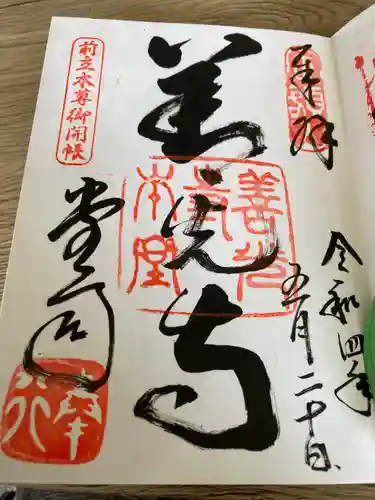 奉拝
令和四年
五月二十日
善光寺
善光寺本堂
前立本尊御開帳
堂司
奉行